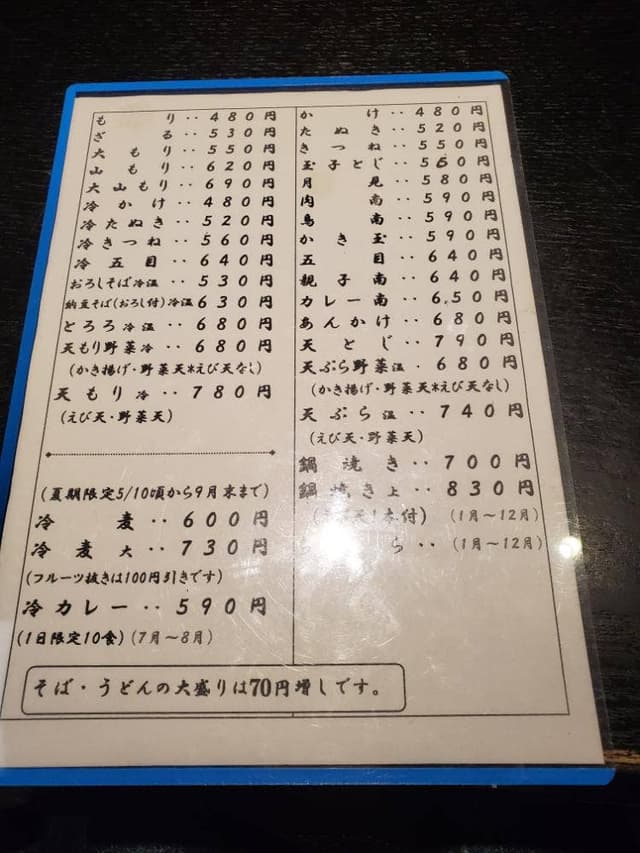 もり‥480円
ざる‥530円
大もり‥550円
山もり‥620円
大山もり‥690円
冷かけ‥480円
冷たぬき‥520円
冷きつね‥560円
冷五目‥640円
おろしそば冷温‥530円
納豆そば(おろし付)冷温630円
とろろ冷温‥680円
天もり野菜冷‥680円
(かき揚げ・野菜天*えび天なし)
天もり冷‥780円
(えび天・野菜天)
(夏期限定5/10頃から9月末まで)
冷麦‥600円
冷麦大‥730円
(フルーツ抜きは100円引きです)
冷カレー‥590円
(1日限定10食)(7月〜8月)
かけ‥480円
たぬき‥520円
きつね‥550円
玉子とじ‥560円
月見‥580円
肉南‥590円
鳥南‥590円
かき玉‥590円
五目‥640円
親子南‥640円
カレー南‥650円
あんかけ‥680円
天とじ‥790円
天ぷら野菜温・680円
(かき揚げ・野菜天*えび天なし)
天ぷら温‥740円
(えび天・野菜天)
鍋焼き‥700円
鍋焼き上‥830円
天1本付)(1月〜12月)
ら‥(1月〜12月)
そば・うどんの大盛りは70円増しです。